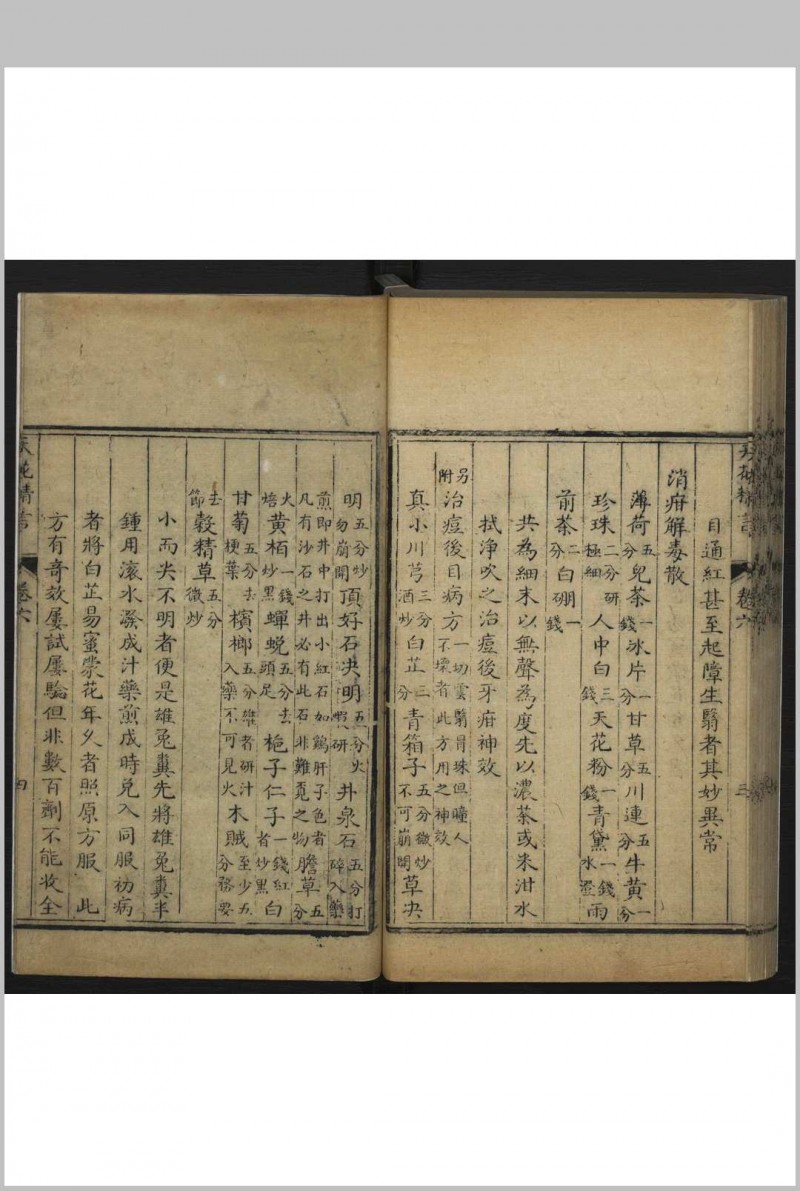 目通紅甚至起障生翳者其妙異常
消疳解毒散
薄荷五分兒茶一錢冰片一分甘草五分川連五分牛黃一分
珍珠二分研極細人中白三錢天花粉一錢青黛一錢水澄雨
前茶二分白硼一錢
共為細末以無聲為度先以濃茶或米泔水
拭淨吹之治痘後牙疳神效
另附治痘後目病方一切雲翳冒珠但瞳人不壞者此方用之神效
真小川芎三分酒炒白芷三分青箱子五分微炒不可崩開草决
明五分炒勿崩開頂好石决明五分火煅研井泉石五分打碎入藥
煎即井中打出小紅石如鷄肝子色者凡有沙石之井必有此石非難覓之物膽草五分
火焙黄栢一錢炒黑蟬蛻五分去頭足梔子仁子一錢紅者炒黑白
甘菊五分去梗葉檳榔五分雞者研汁入藥不可見火木賊至少五分務要
去節穀精草五分微炒
小而尖不明者便是雄兔糞先將雄兔糞半
鍾用滚水潑成汁藥煎成時兑入同服初病
者將白芷易蜜蒙花年久者照原方服 此
方有奇效屡試屡驗但非數百劑不能收全
卷六
三
卷六
四